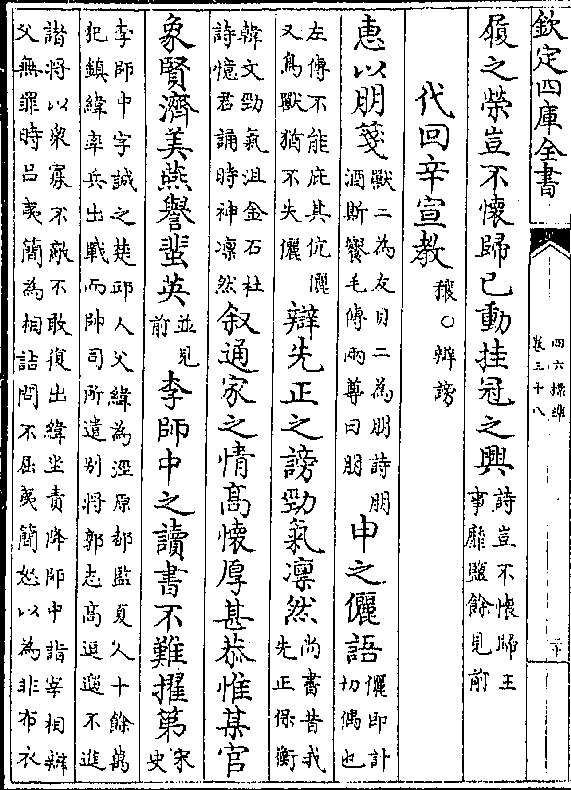 欽定四庫全書
四六標準
卷三十八
履之榮豈不懷歸已動挂冠之興詩豈不懷歸王
事靡盬餘見前
代回辛宣教穰○辨謗
惠以朋箋獸二為友目二為朋詩朋
酒斯饗毛傳兩尊曰朋申之儷語儷即計
切偶也
左傳不能庇其伉儷
又鳥獸猶不失儷辯先正之謗勁氣凛然尚書昔我
先正保衡
韓文勁氣沮金石杜
詩憶君誦時神凛然叙通家之情高懷厚甚恭惟某官
象賢濟美燕譽蜚英並見
前李師中之讀書不難擢第宋
史
李師中字誠之楚邱人父緯為涇原都監夏人十餘萬
犯鎮緯率兵出戰而帥司所遣别將郭志高逗遛不進
諸將以衆寡不敵不敢復出緯坐責降師中詣宰相辯
父無罪時吕夷簡為相詰問不屈夷簡怒以為非布衣